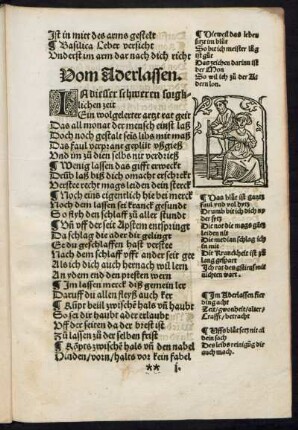 Ist in mitt des arms gestelt
¶ Basilica Leber versicht
Underst im arm dar nach dich richt
Vom Aderlassen.
IN diser schweren sorg-
lichen zeit
Ein wolgelerter artzt rat geit
Das all monat der mensch einst laß
Doch noch gestalt seis libs mit maß
Das faul verprant geplüt vßgieß
Und im zu dien selbs nit verdrieß
¶ Wenig lassen das gifft erweckt
Verste recht mags leiden dein
¶ Noch eins eigentlich hie bei merck
Noch dem lassen so kranck gefundt
So flyh den schlaff zu aller stundt
¶ Un vff der seit Apstem entspringt
Da schlag die ader die gelingt
Ee du geschlaffen hast verstee
Nach dem schlaff offt ander seit gee
Als ich dich auch hernach wil leren
An oben end den presten wern
¶ Im lassen merck diß gemein ler
Daruff du allen fleyß auch ker
¶ Köpr beill zwische hals vn haubt
So sei dir haubt ader erlaubt
Uff der seiten da der brest ist
Zu lassen zu der selben frist
¶ Köpts zwische hals vn den nabel
Viaden/vorn/halts vor kein fabel
** i.
¶ Dieweil das leben
ist im blut
So bit ich meister lug
ist gut
Das zeichen darinn ist
der Mon
So wil ich zu der A
dern lon.
¶ Das blut ist gantz
faul vnd vol hertz
Drumb bit ich dich op
der hertz
Die not die mags gut
leiden nit
Die median schlag ich
in mit
Die Kranckheit ist zu
lang gespart
Ich rat den gstirns nit
wichten wart.
¶ Im Aderlassen fier
ding acht
Zeit/gwonheit/alter/
Crafft/betracht
dem sach
Des leibs reinigung die
auch mach.